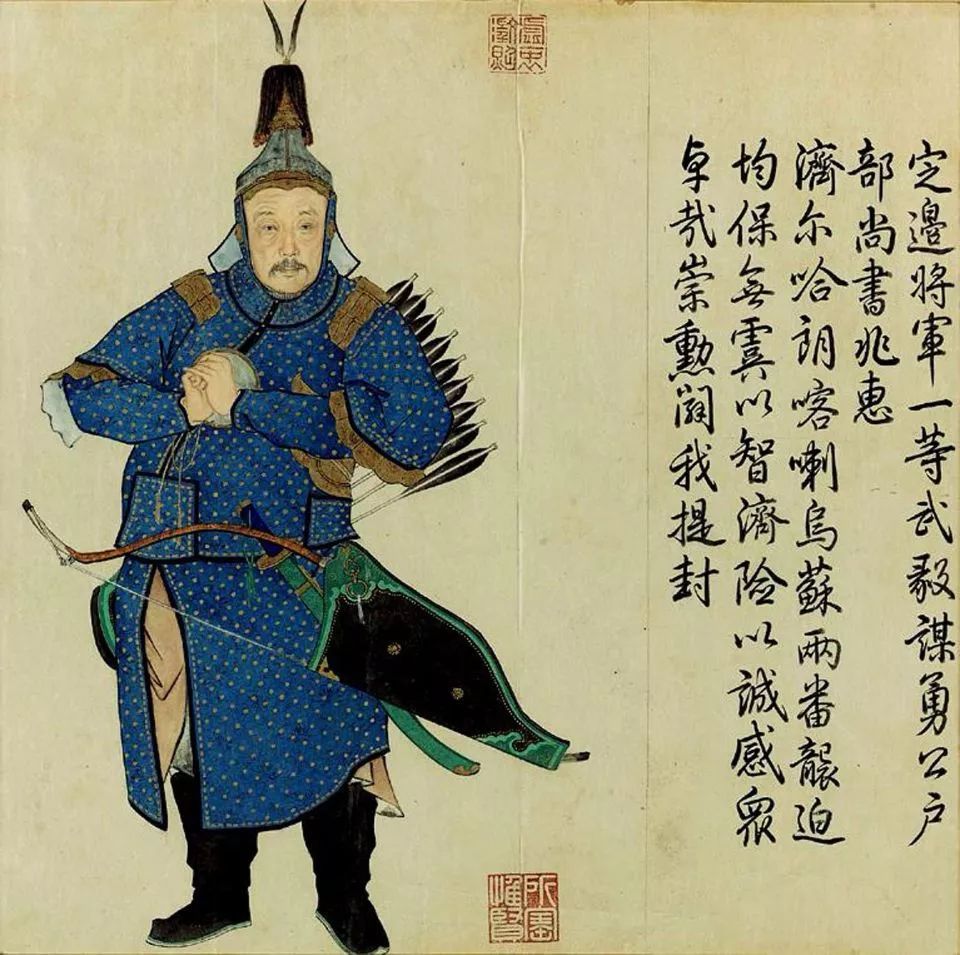 定邊將軍一等武毅謀勇公户
部尚書兆惠
濟尔哈朗喀喇烏蘇兩番襲迫
均保無虞以智濟險以誠感衆
卓哉崇勳闢我提封
所寶惟賢